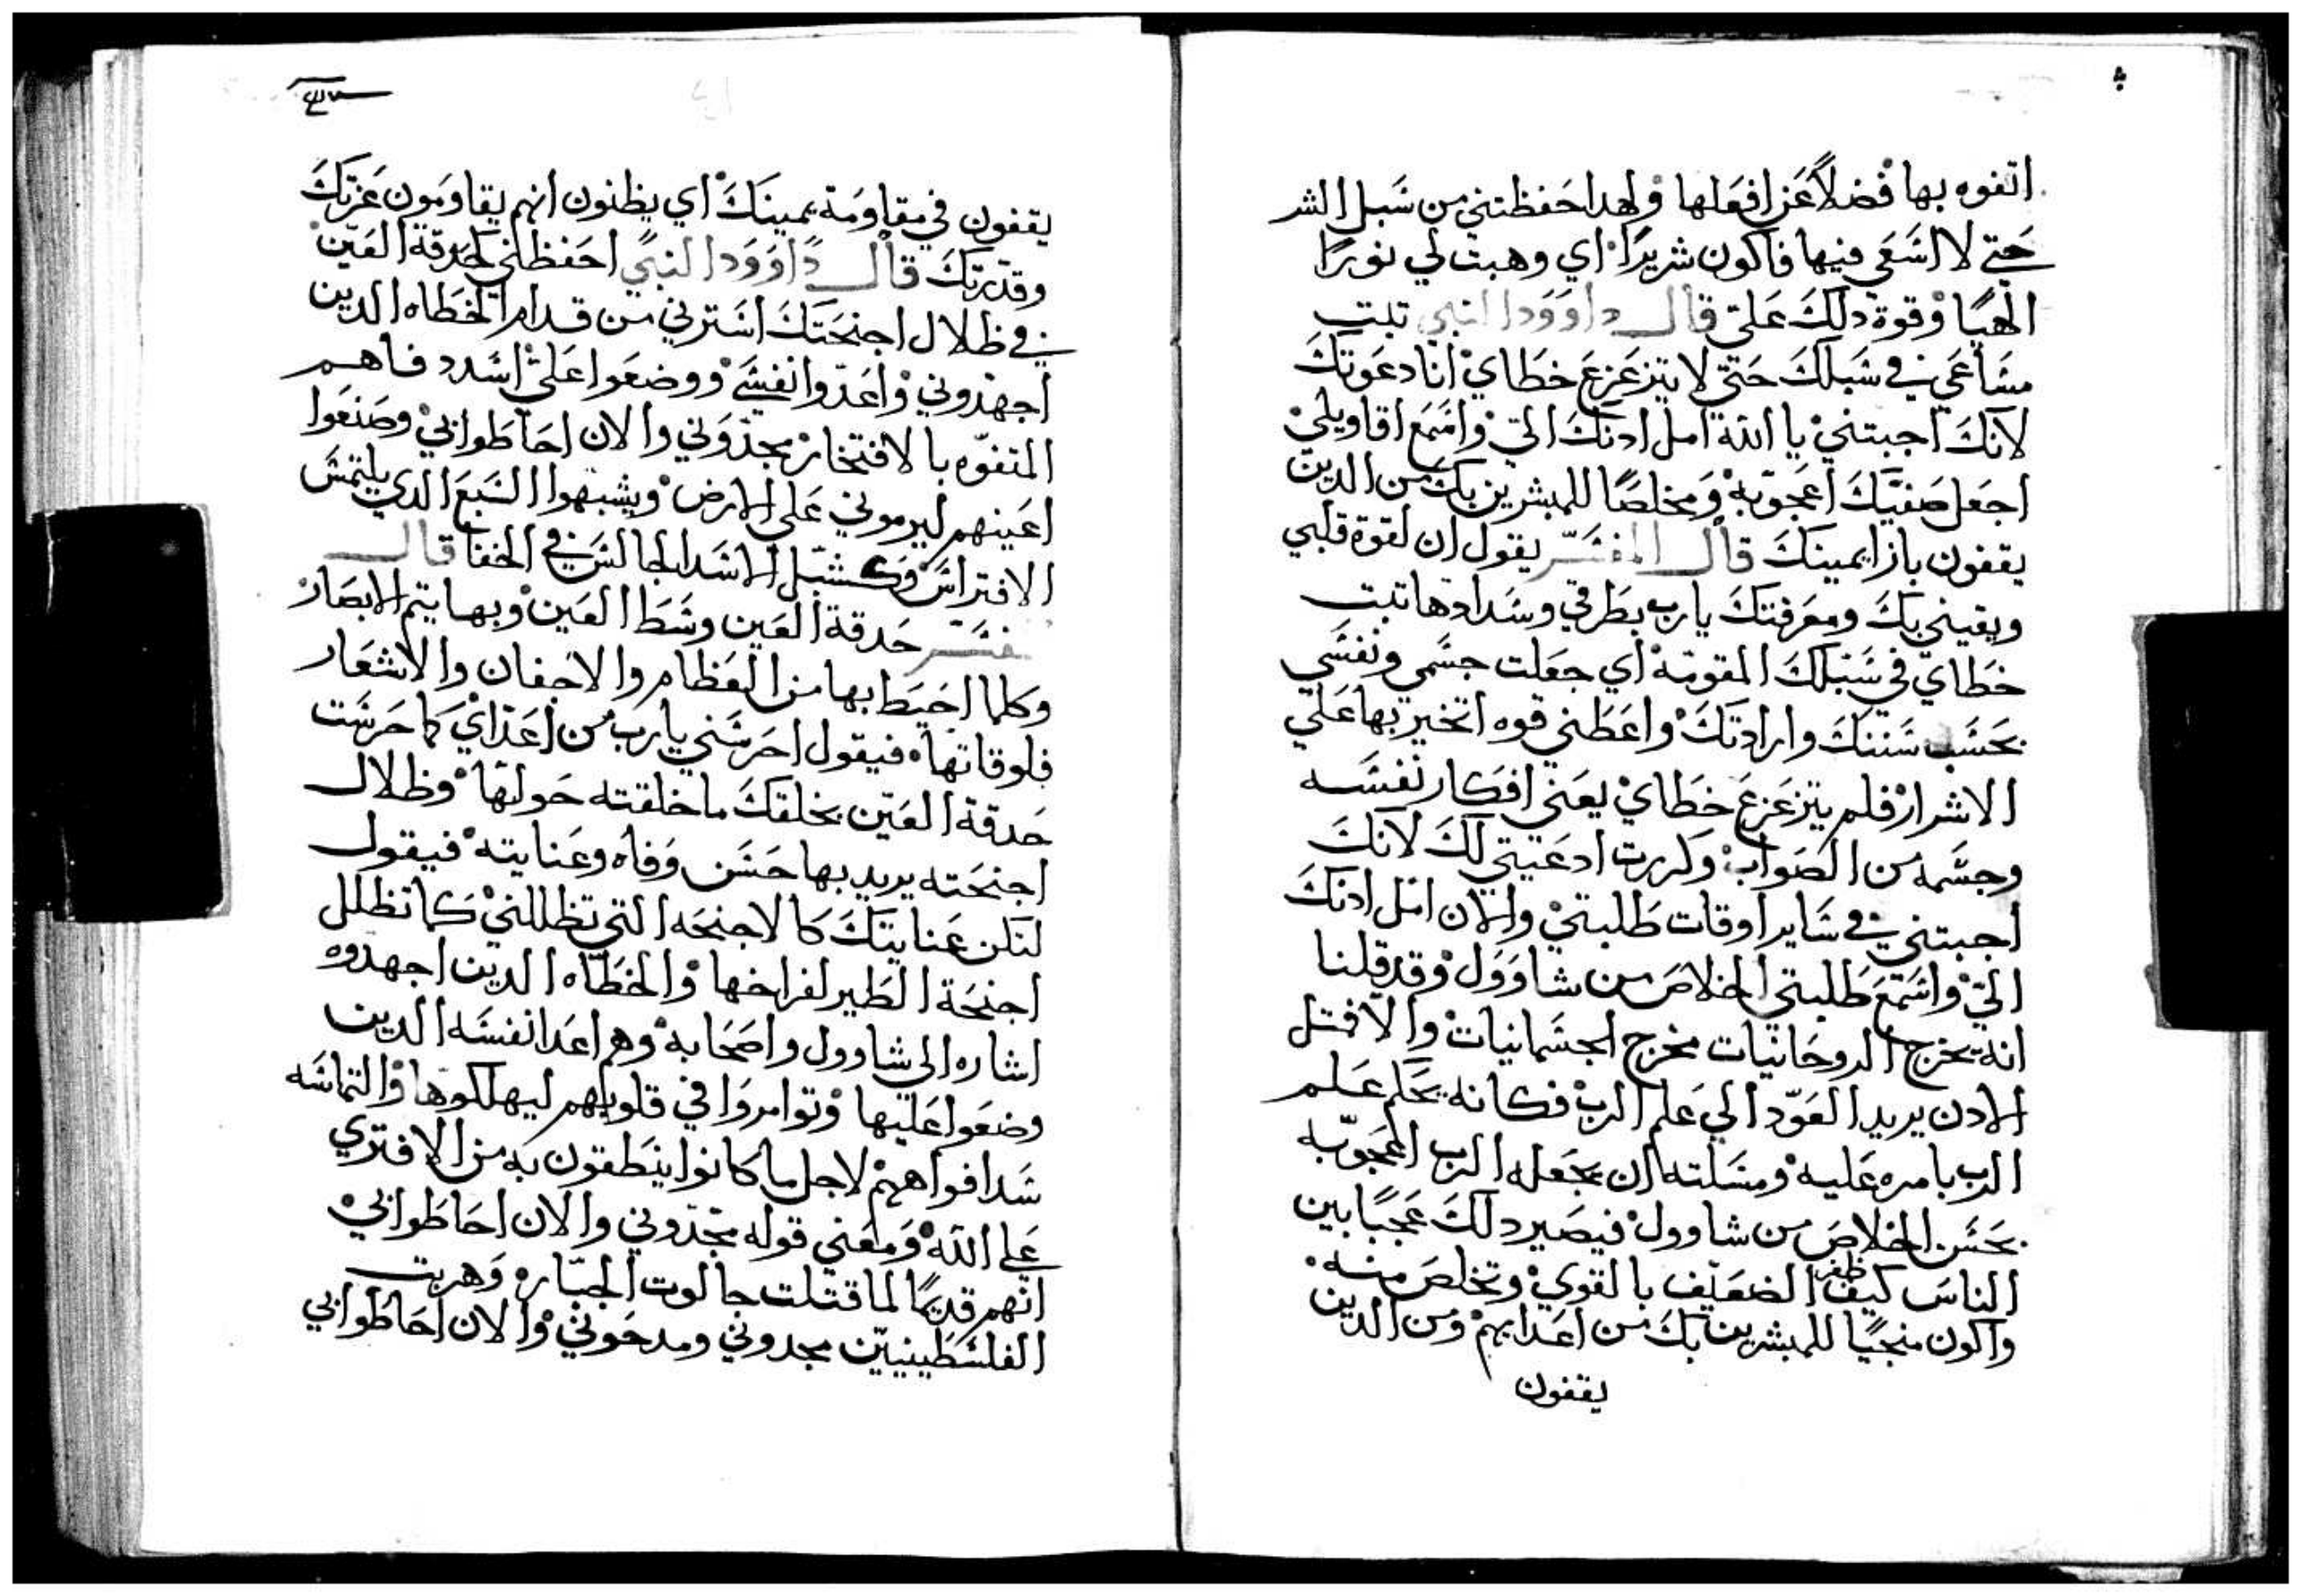 اتفوه بها فضلاً عن افعلها ولهدا حفظتني من سبل الشر
حتي لا اسعي فيها فاكون شريرًا اي وهبت لي نورًا
الهيًا وقوة دلك علي قال داوود النبي تبت
مساعي في سبلك حتي لا يتزعزع خطاي انا دعوتك
لانك اجبتني يا الله امل ادنك الي واسمع اقاويلي
اجعل صفيك اعجوبه ومخلصًا للمبشرين بك من الدين
يقفون بازا يمينك قال المفسر يقول ان لقوة قلبي
ويقيني بك ومعرفتك يارب بطرقي وسدادها تبت
خطاي في سبلك المقومة اي جعلت جسمي ونفسي
بحسب سننك وارادتك واعطني قوه اتخير بها علي
الاشرار فلم يتزعزع خطاي يعني افكار نفسه
وجسمه من الصواب وكررت ادعيتي لك لانك
اجبتني في ساير اوقات طلبتي والان امل ادنك
الي واسمع طلبتي الخلاص من شاوول وقد قلنا
انه يخرج الروحانيات مخرج الجسمانيات والا فمثل
الادن يريد العود الي علم الرب فكانه يحكم علم
الرب بامره عليه ومسلته ان يجعله الرب اعجوبه
بحسن الخلاص من شاوول فيصير دلك عجبًا بين
الناس كيف ظفر الضعيف بالقوي وتخلص منه
واكون منجيًا للمبشرين بك من اعدايهم ومن الدين
يقفون
يقفون في مقاومة يمينك اي يظنون انهم يقاومون عزتك
وقدرتك قال داوود النبي احفظني كحدقة العين
في ظلال اجنحتك استرني من قدام الخطاه الدين
اجهدوني واعدوا نفسي ووضعوا علي اسدد فاهم
المتفوه بالافتخار مجدوني والان احاطوا بي وصنعوا
اعينهم ليرموني علي الارض ويشبهوا السبع الدي يلتمس
الافتراس وكشبل الاسد الجالس في الخفا قال
المفسر حدقة العين وسط العين وبها يتم الابصار
وكلما احيط بها من العظام والاجفان والاشعار
فلوقاتها فيقول احرسني يارب من اعداي كما حرست
حدقة العين بخلقك ما خلقته حولها وظلال
اجنحته يريد بها حسن وفاه وعنايته فيقول
لتكن عنايتك كالاجنحه التي تظللني كما تظلل
اجنحة الطير لفراخها والخطاه الدين اجهدوه
اشاره الي شاوول واصحابه وهم اعدا نفسه الدين
وضعوا عليها وتوامروا في قلوبهم ليهلكوها والتماسه
سد افواههم لاجل ما كانوا ينطقون به من الافتري
علي الله ومعني قوله مجدوني والان احاطوا بي
انهم قديمًا لما قتلت جالوت الجباره وهربت
الفلسطينيين مجدوني ومدحوني والان احاطوا بي